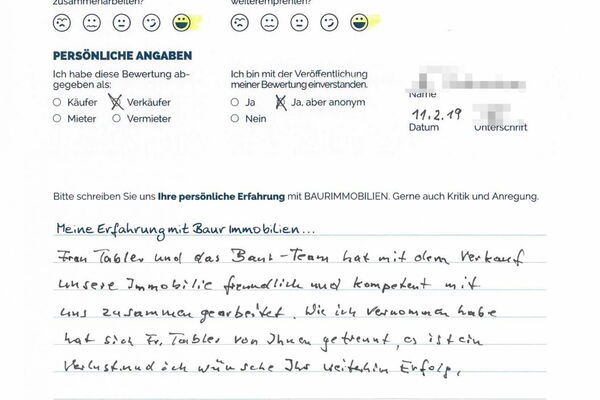 zusammenarbeiten?
weiterempfehlen?
PERSÖNLICHE ANGABEN
Ich habe diese Bewertung ab-
gegeben als:
Käufer Verkäufer
Mieter Vermieter
Ich bin mit der Veröffentlichung
meiner Bewertung einverstanden.
Ja Ja, aber anonym
Nein
Name
11.2.19
Datum Unterschrift
Bitte schreiben Sie uns Ihre persönliche Erfahrung mit BAURIMMOBILIEN. Gerne auch Kritik und Anregung.
Meine Erfahrung mit Baur Immobilien...
Frau Tabler und das Baur-Team hat mit dem Verkauf
unsere Immobilie freundlich und kompetent mit
uns zusammen gearbeitet. Wie ich vernommen habe
hat sich Fr. Tabler von Ihnen getrennt, es ist ein
Verlust und ich wünsche Ihr weiterhin Erfolg.